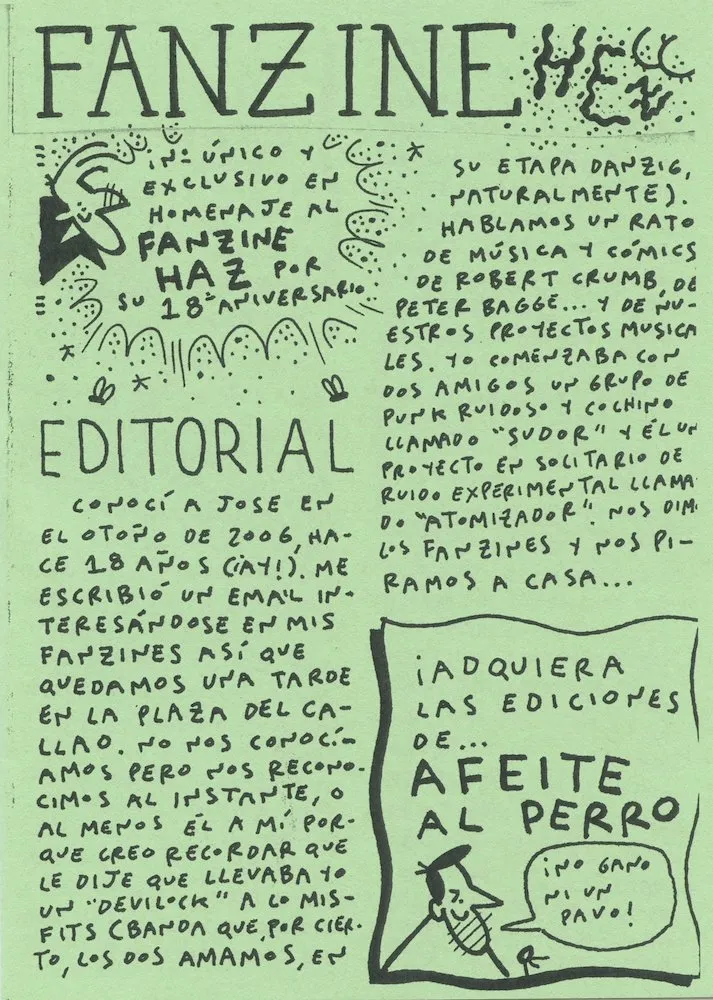 FANZINE HEY
¡Nº ÚNICO Y
EXCLUSIVO EN
HOMENAJE AL
FANZINE
HAZ POR
SU 18º ANIVERSARIO
EDITORIAL
CONOCÍ A JOSE EN
EL OTOÑO DE 2006, HA-
CE 18 AÑOS (¡AY!). ME
ESCRIBIÓ UN EMAIL IN-
TERESÁNDOSE EN MIS
FANZINES ASÍ QUE
QUEDAMOS UNA TARDE
EN LA PLAZA DEL CA-
LLAO. NO NOS CONOCÍ-
AMOS PERO NOS RECONO-
CIMOS AL INSTANTE, O
AL MENOS ÉL A MÍ POR-
QUE CREO RECORDAR QUE
LE DIJE QUE LLEVABA YO
UN "DEVILOCK" A LO MIS-
FITS (BANDA QUE, POR CIER-
TO, LOS DOS AMAMOS, EN
SU ETAPA DANZIG,
NATURALMENTE).
HABLAMOS UN RATO
DE MÚSICA Y CÓMICS
DE ROBERT CRUMB, DE
PETER BAGGE... Y DE NU-
ESTROS PROYECTOS MUSICA
LES. YO COMENZABA CON
DOS AMIGOS UN GRUPO DE
PUNK RUIDOSO Y COCHINO
LLAMADO "SUDOR" Y ÉL UN
PROYECTO EN SOLITARIO DE
RUIDO EXPERIMENTAL LLAMA
DO "ATOMIZADOR". NOS DIM
LOS FANZINES Y NOS PI-
RAMOS A CASA...
¡ADQUIERA
LAS EDICIONES
DE...
AFEITE
AL PERRO
¡NO GANO
NI UN
PAVO!